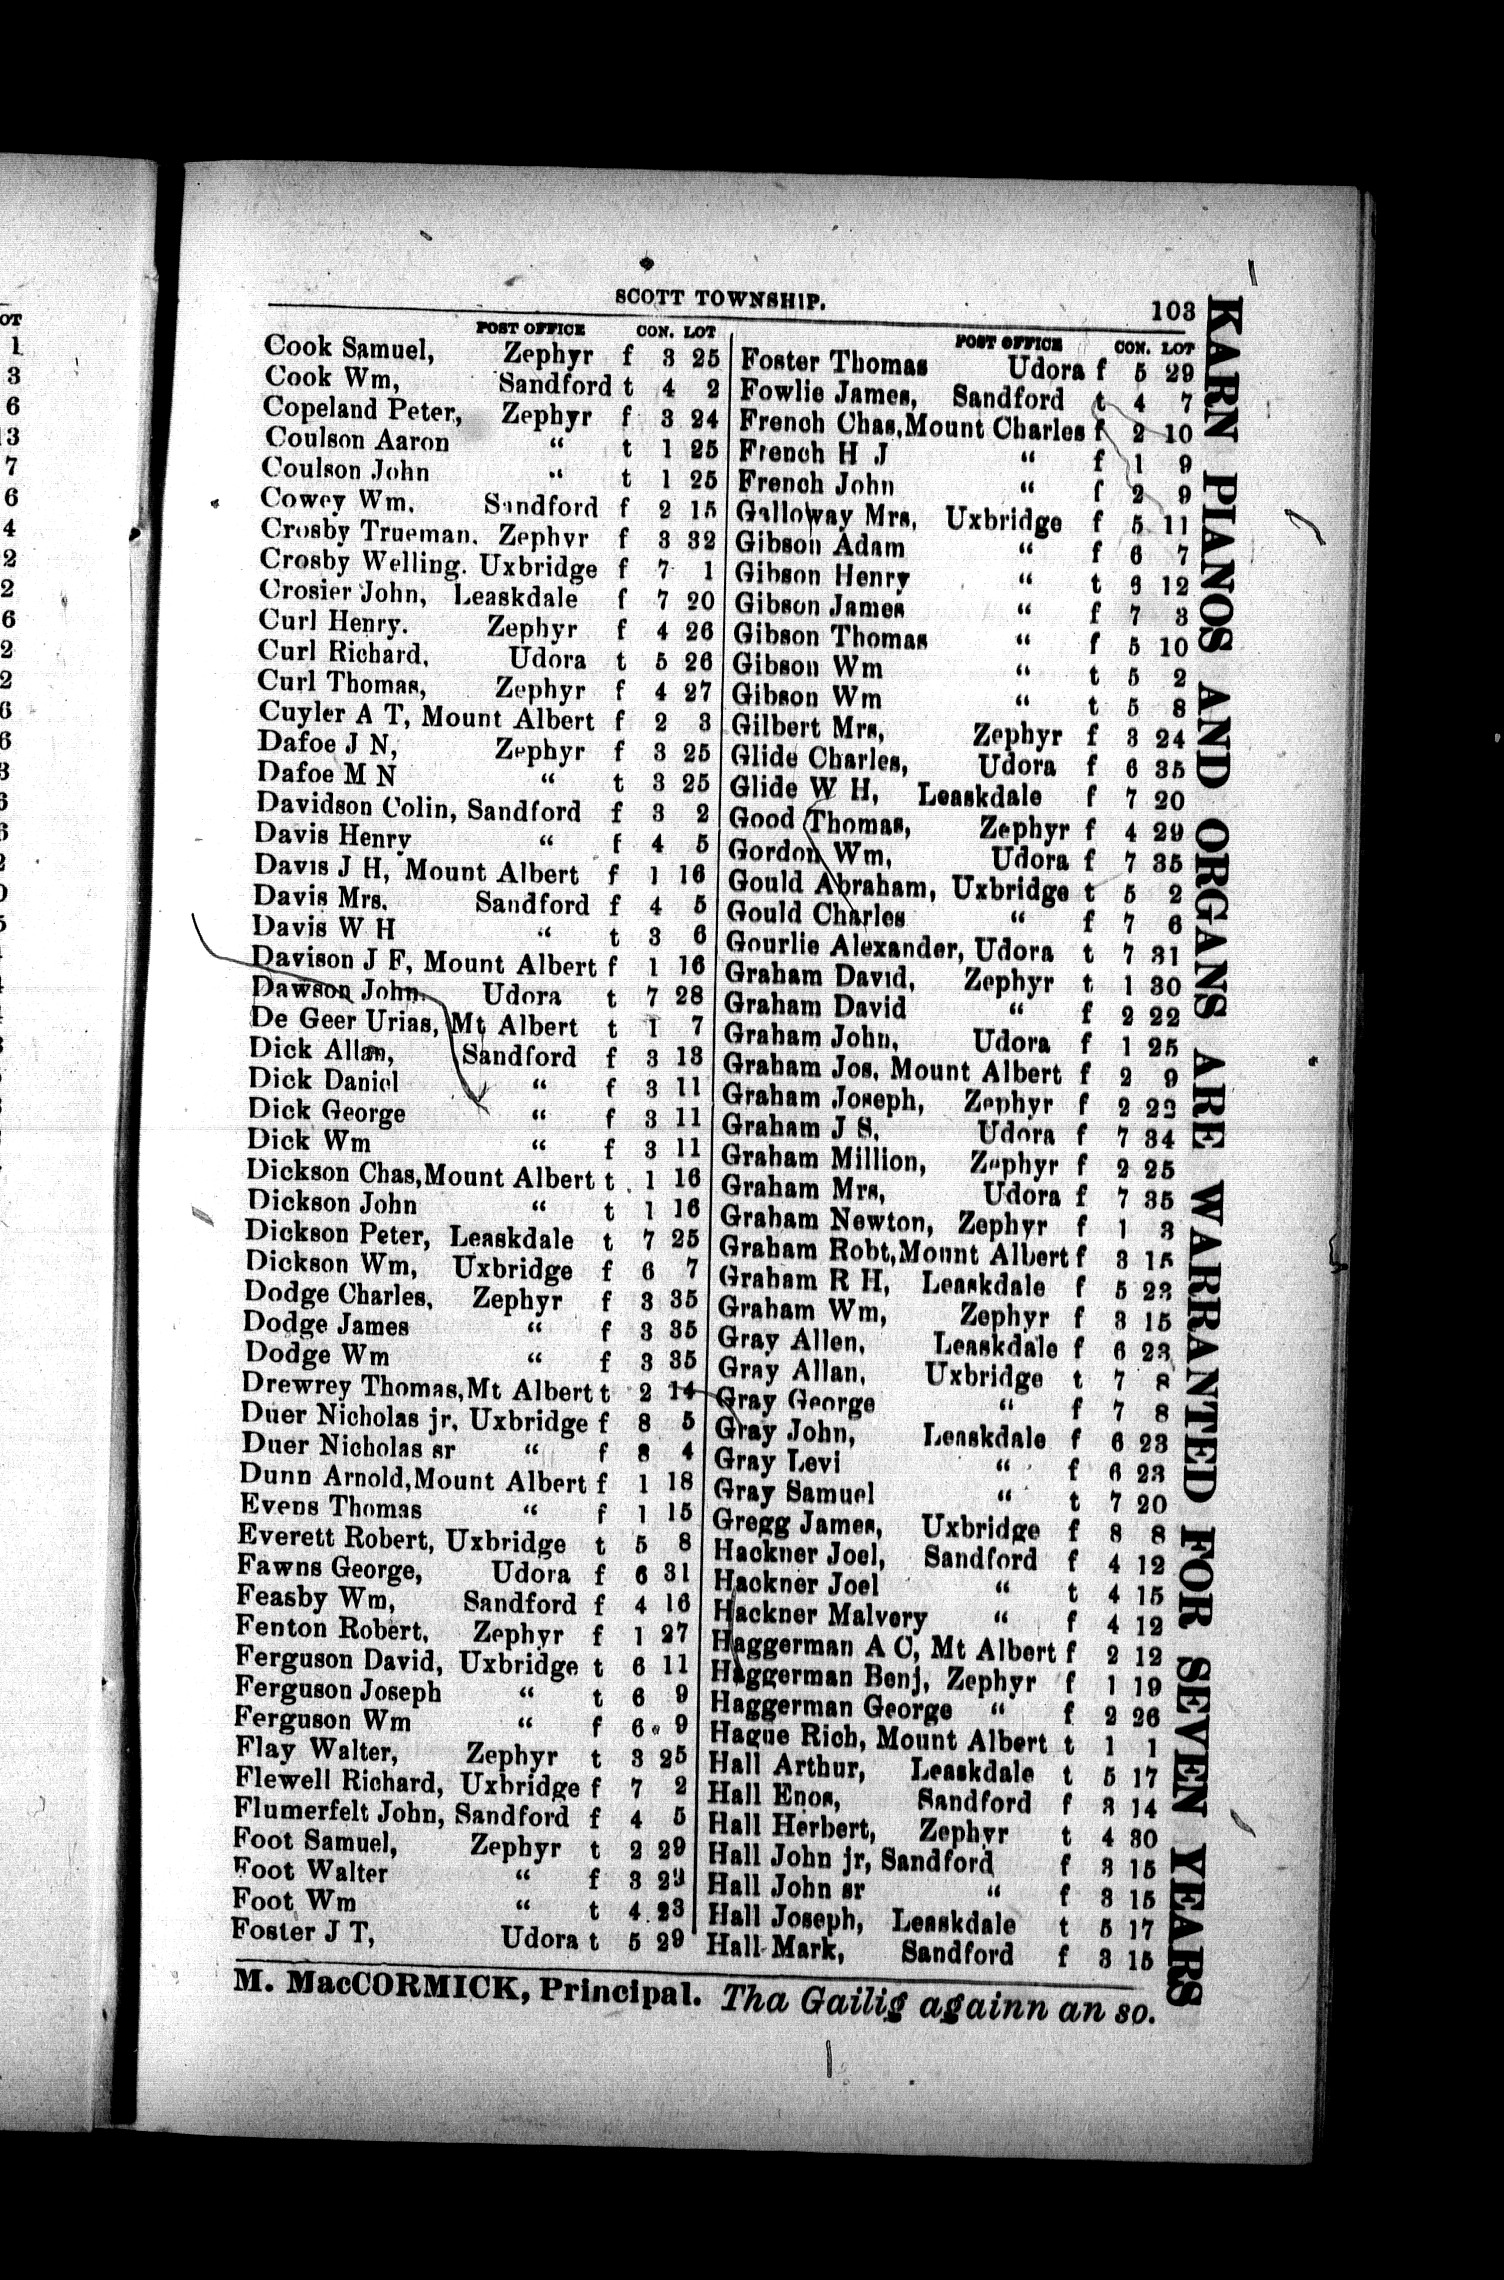 SCOTT TOWNSHIP.
103
POST OFFICE CON. LOT
Cook Samuel, Zephyr f 3 25
Cook Wm, Sandford t 4 2
Copeland Peter, Zephyr f 3 24
Coulson Aaron “ t 1 25
Coulson John “ t 1 25
Cowey Wm. Sandford f 2 15
Crosby Trueman. Zephyr f 3 32
Crosby Welling. Uxbridge f 7 1
Crosier John, Leaskdale f 7 20
Curl Henry. Zephyr f 4 26
Curl Richard, Udora t 5 26
Curl Thomas, Zephyr f 4 27
Cuyler A T, Mount Albert f 2 3
Dafoe J N, Zephyr f 3 25
Dafoe M N “ t 3 25
Davidson Colin, Sandford f 3 2
Davis Henry “ f 4 5
Davis J H, Mount Albert f 1 16
Davis Mrs. Sandford f 4 5
Davis W H “ t 3 6
Davison J F, Mount Albert f 1 16
Dawson John. Udora t 7 28
De Geer Urias, Mt Albert t 1 7
Dick Allan, Sandford f 3 13
Dick Daniel “ f 3 11
Dick George “ f 3 11
Dick Wm “ f 3 11
Dickson Chas, Mount Albert t 1 16
Dickson John “ t 1 16
Dickson Peter, Leaskdale t 7 25
Dickson Wm, Uxbridge f 6 7
Dodge Charles, Zephyr f 3 35
Dodge James “ f 3 35
Dodge Wm “ f 3 35
Drewrey Thomas, Mt Albert t 2 14
Duer Nicholas jr, Uxbridge f 8 5
Duer Nicholas sr “ f 8 4
Dunn Arnold, Mount Albert f 1 18
Evens Thomas “ f 1 15
Everett Robert, Uxbridge t 5 8
Fawns George, Udora f 6 31
Feasby Wm, Sandford f 4 16
Fenton Robert, Zephyr f 1 27
Ferguson David, Uxbridge t 6 11
Ferguson Joseph “ t 6 9
Ferguson Wm “ f 6 9
Flay Walter, Zephyr t 3 25
Flewell Richard, Uxbridge f 7 2
Flumerfelt John, Sandford f 4 5
Foot Samuel, Zephyr t 2 29
Foot Walter “ f 3 29
Foot Wm “ t 4 23
Foster J T, Udora t 5 29
POST OFFICE CON. LOT
Foster Thomas Udora f 5 29
Fowlie James, Sandford t 4 7
French Chas, Mount Charles f 2 10
French H J “ f 1 9
French John “ f 2 9
Galloway Mrs, Uxbridge f 5 11
Gibson Adam “ f 6 7
Gibson Henry “ t 12
Gibson James “ f 7 3
Gibson Thomas “ f 5 10
Gibson Wm “ t 5 2
Gibson Wm “ t 5 8
Gilbert Mrs, Zephyr f 3 24
Glide Charles, Udora f 6 35
Glide W H, Leaskdale f 7 20
Good Thomas, Zephyr f 4 29
Gordon Wm, Udora f 7 35
Gould Abraham, Uxbridge t 5 2
Gould Charles “ f 7 6
Gourlie Alexander, Udora t 7 31
Graham David, Zephyr t 1 30
Graham David “ f 2 22
Graham John, Udora f 1 25
Graham Jos, Mount Albert f 2 9
Graham Joseph, Zephyr f 2 22
Graham J S, Udora f 7 34
Graham Million, Zephyr f 2 25
Graham Mrs, Udora f 7 35
Graham Newton, Zephyr f 1 3
Graham Robt, Mount Albert f 3 15
Graham R H, Leaskdale f 5 23
Graham Wm, Zephyr f 3 15
Gray Allen, Leaskdale f 6 23
Gray Allan, Uxbridge t 7 8
Gray George “ f 7 8
Gray John, Leaskdale f 6 23
Gray Levi “ f 6 23
Gray Samuel “ t 7 20
Gregg James, Uxbridge f 8 8
Hackner Joel, Sandford f 4 12
Hackner Joel “ t 4 15
Hackner Malvery “ f 4 12
Haggerman A C, Mt Albert f 2 12
Haggerman Benj, Zephyr f 1 19
Haggerman George “ f 2 26
Hague Rich, Mount Albert t 1 1
Hall Arthur, Leaskdale t 5 17
Hall Enos, Sandford f 3 14
Hall Herbert, Zephyr t 4 30
Hall John jr, Sandford f 3 15
Hall John sr “ f 3 15
Hall Joseph, Leaskdale t 5 17
Hall Mark, Sandford f 3 15
KARN PIANOS AND ORGANS ARE WARRANTED FOR SEVEN YEARS
M. MacCORMICK, Principal. Tha Gailig againn an so.